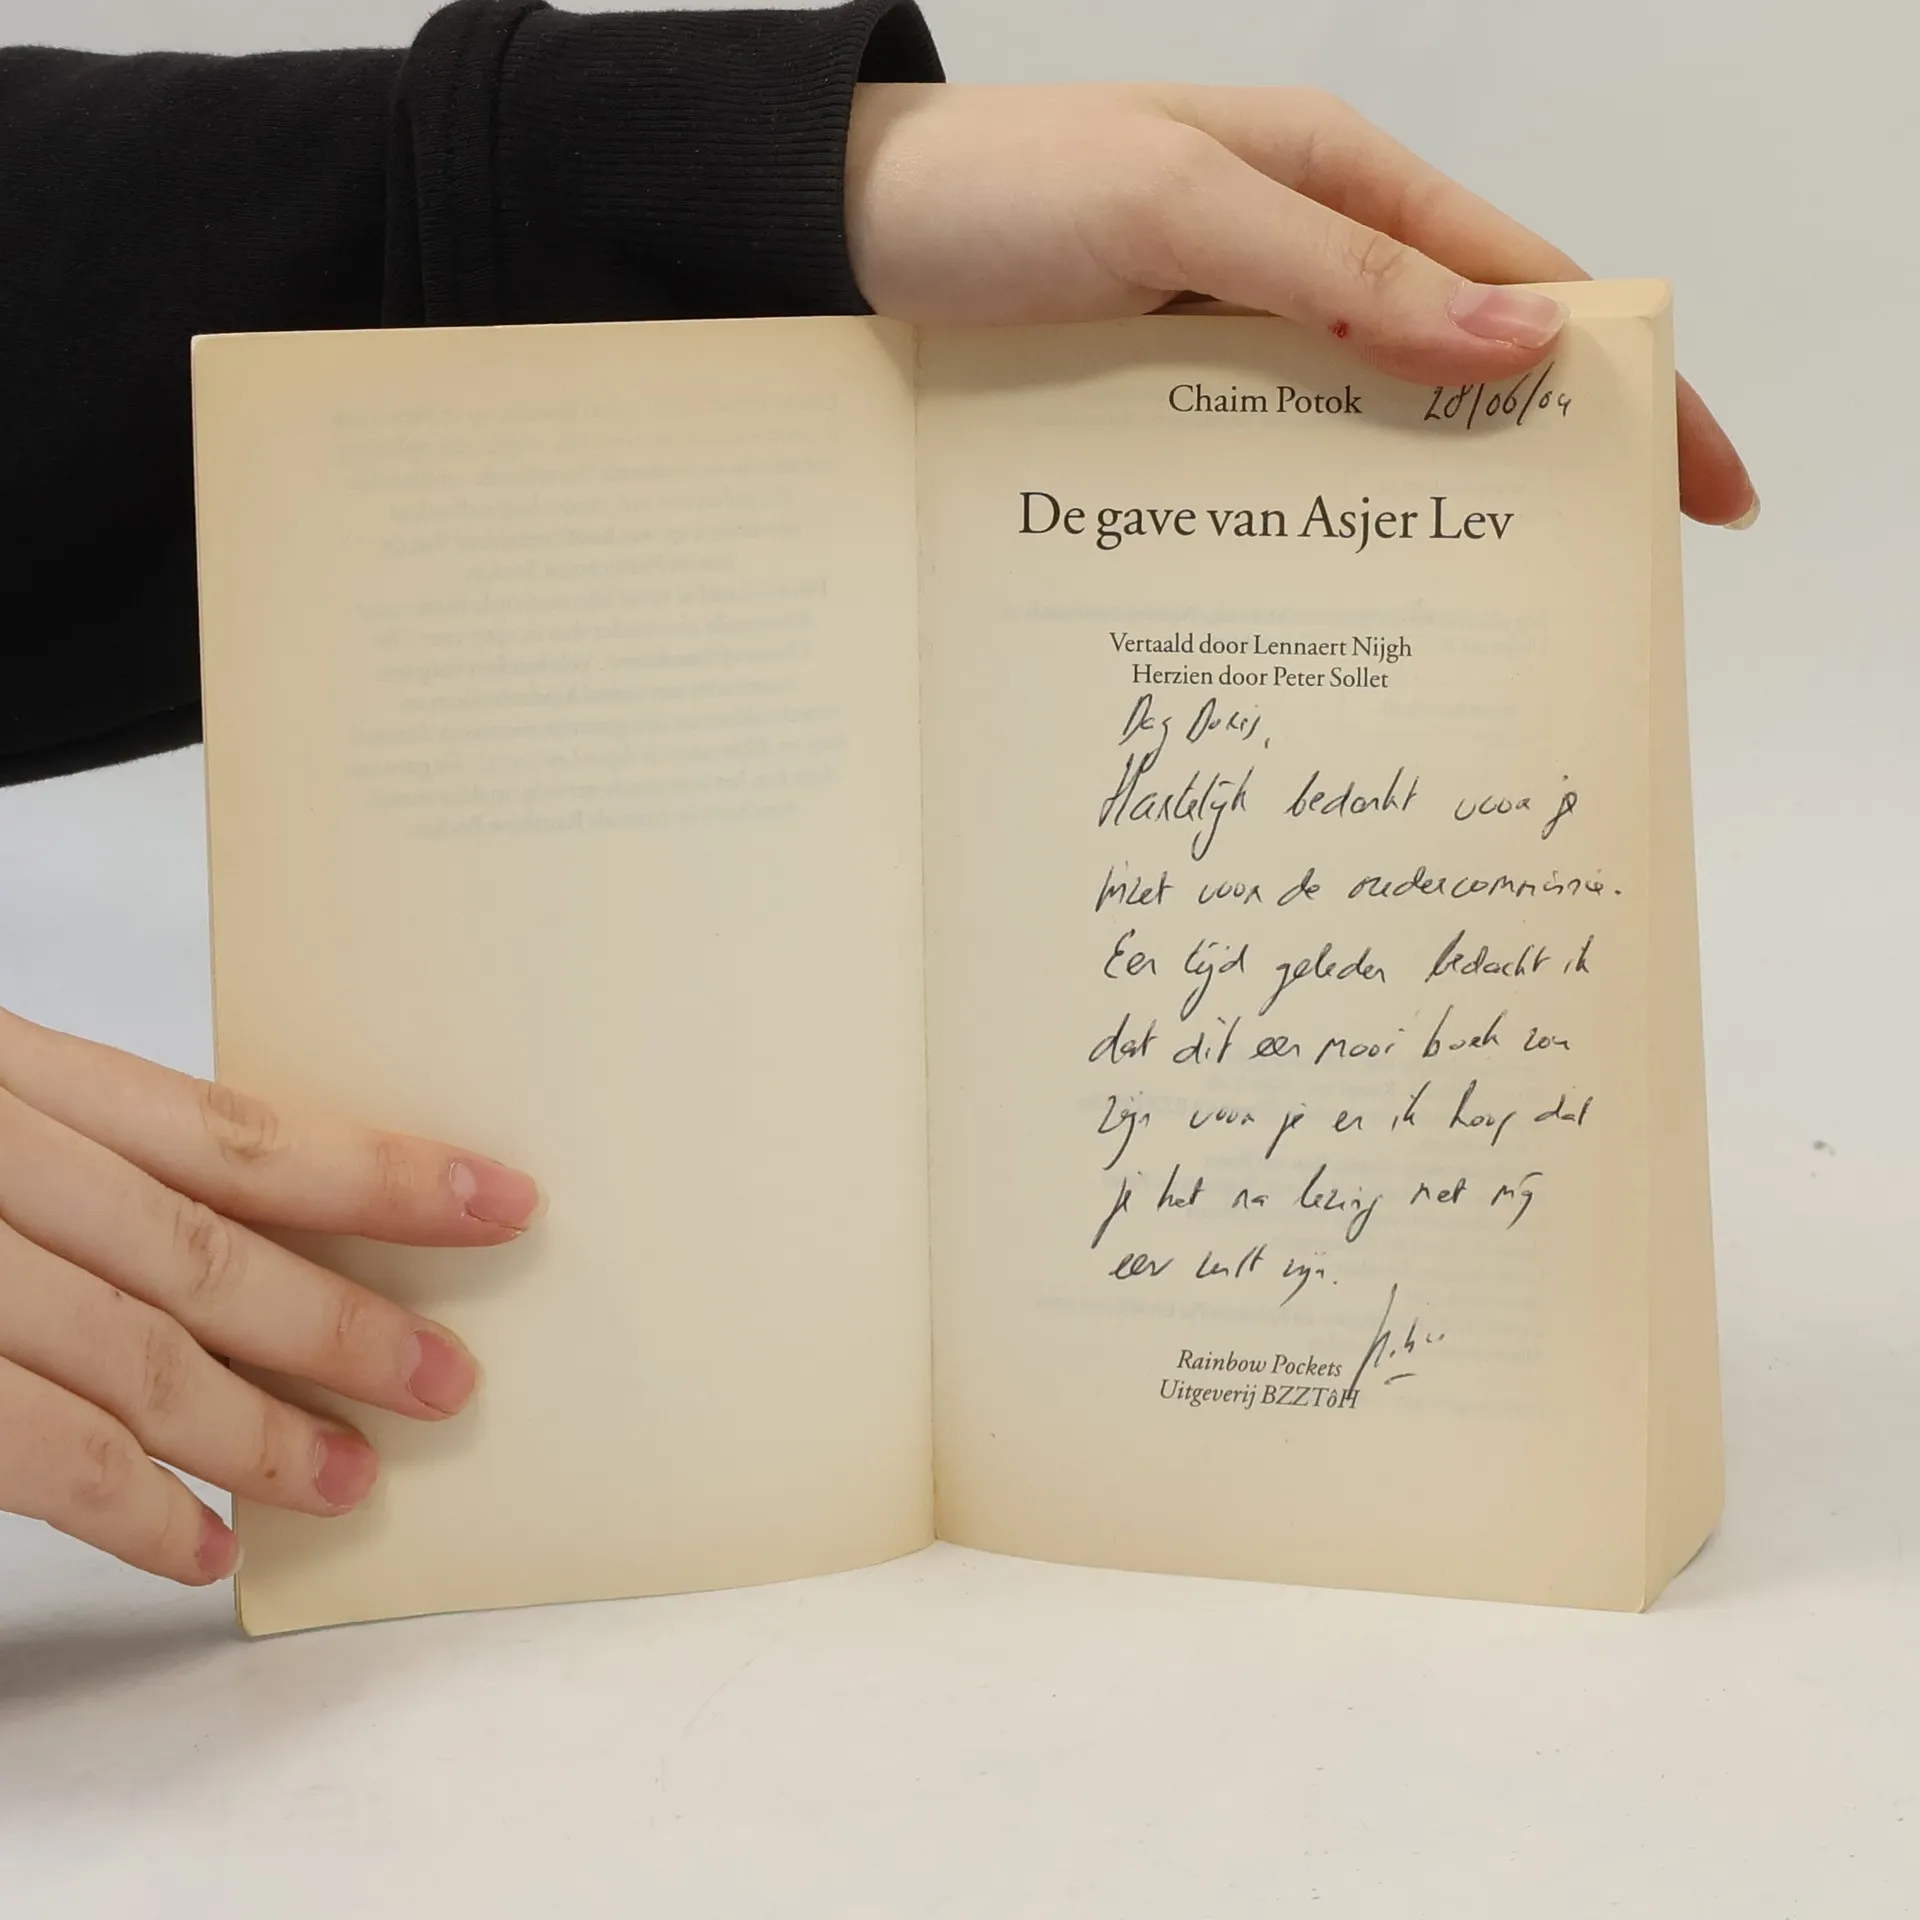 Chaim Potok 28/06/04
De gave van Asjer Lev
Vertaald door Lennaert Nijgh
Herzien door Peter Sollet
Dag Doris,
Hartelijk bedankt voor je
inzet voor de oudercommissie.
Een tijd geleden bedacht ik
dat dit een mooi boek zou
zijn voor je en ik hoop dat
je het na lezing met mij
eens zult zijn.
Rainbow Pockets
Uitgeverij BZZTôH